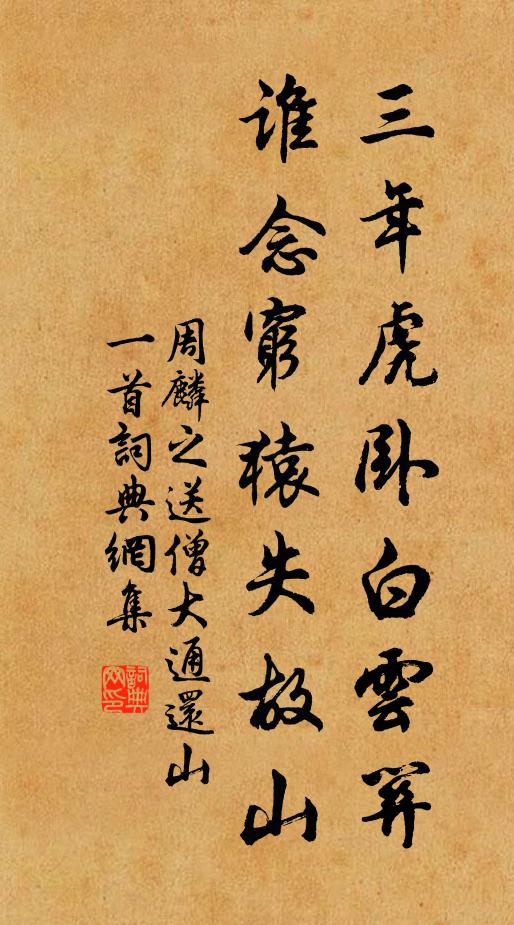 三年虎卧白雲關
谁念窮猿失故山
周麟之送僧大通還山
一首詞典網集
詞典网印